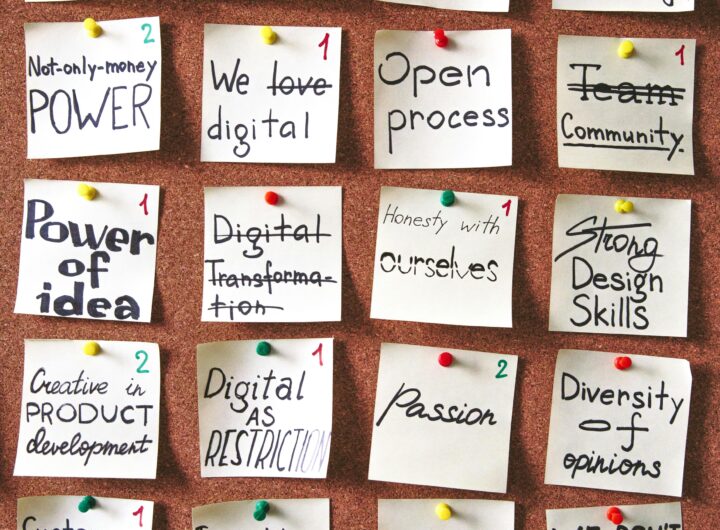 2
Not-only-money
POWER
1
We love
digital
Open
process
1
Team
Community.
1
Power
of
idea
Digital
Transforma-
tion
1
Honesty with
ourselves
Strong
Design
Skills
2
Creative in
PRODUCT
development
1
Digital
AS
RESTRICTION
2
Passion
Diversity
of
opinions
1